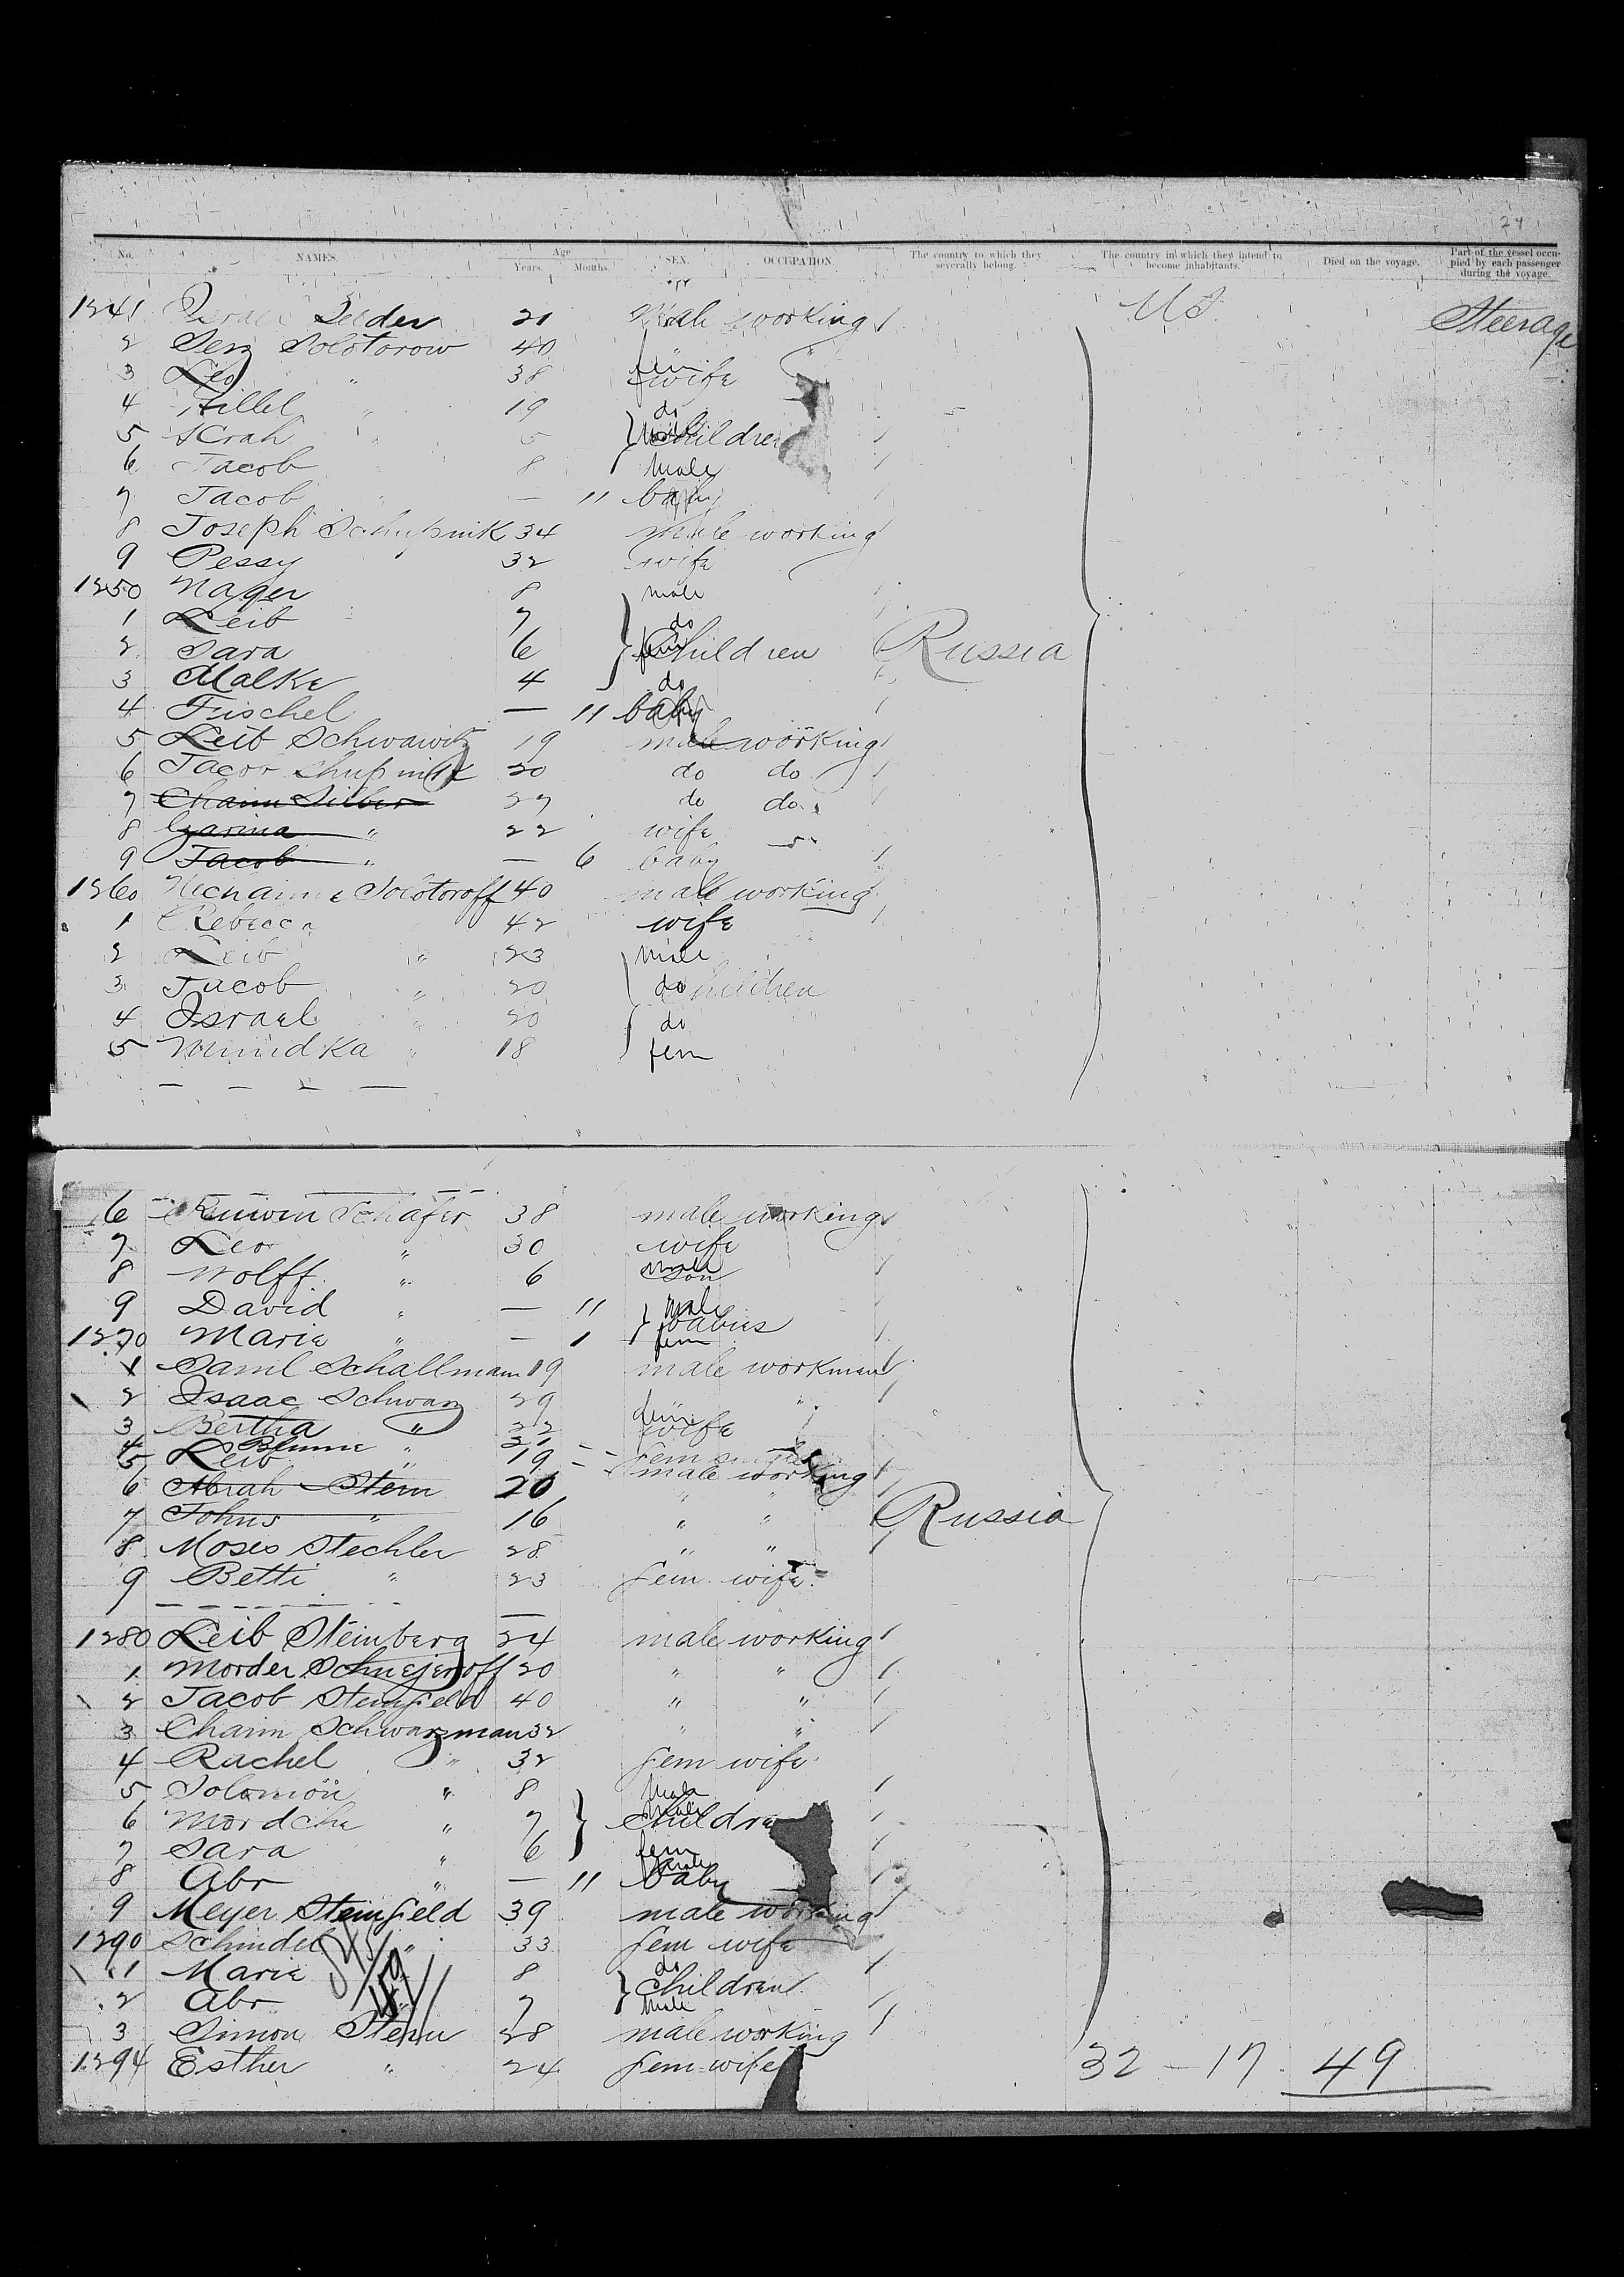 24
No. NAMES. Age Years. Months. SEX. OCCUPATION. The country to which they severally belong. The country in which they intend to become inhabitants. Died on the voyage. Part of the vessel occupied by each passenger during the voyage.
1241 21 Male working US Steerage
2 Solotorow 40 " "
3 Leo " 38 fem wife
4 Hillel " 19 do
5 " 5 children
6 Jacob 8 male
7 Jacob " — 11 baby
8 Joseph Schupnik 34 male working
9 Pessy 32 wife
1250 8 male
1 Leib 7 do
2 Sara 6 fem Children Russia
3 Malke 4 do
4 Fischel — 11 baby
5 Leib 19 male working
6 20 do do
7 Chaim Silber 27 do do
8 " 22 wife
9 Jacob " — 6 baby
1260 Solotoroff 40 male working
1 Rebecca 42 wife
2 Leib " 23 male
3 Jacob " 20 do children
4 Israel " 20 do
5 " 18 fem
6 Schafer 38 male working
7 Leo " 30 wife
8 Wolff " 6 male son
9 David " — 11 male babies
1270 Marie " — 1 fem
1 Saml Schallmann 19 male workman
2 Isaac Schwarz 29 " "
3 Bertha " 22 fem wife
4 Blume " 21 fem
5 Leib " 19 male working
6 Abrah Stern 20 " "
7 Johns " 16 " " Russia
8 Moses Stechler 28 " "
9 Betti " 23 fem wife
1280 Leib Steinberg 24 male working
1 Morder 20 " "
2 Jacob Steinfeld 40 " "
3 Chaim Schwarzman 32 " "
4 Rachel " 32 fem wife
5 Solomon " 8 male
6 Mordche " 7 male children
7 Sara " 6 fem
8 Abr " — 11 male baby
9 Meyer Steinfeld 39 male working
1290 Schindel " 33 fem wife
1 Marie 8 do children
2 Abr 7 male
3 Simon Stern 28 male working
1294 Esther " 24 fem wife 32 - 17 49